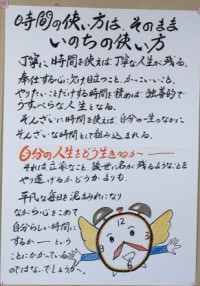 時間の使い方は、そのまま
いのちの使い方
丁寧に時間を使えば丁寧な人生が残る。
奉仕する心に欠け目立つこと、かっこいいこと、
やりたいことだけする時間を積めば独善的で
うすっぺらな人生となる。
ぞんざいに時間を使えば自分の一生のなかに
ぞんざいな時間として組み込まれる。
自分の人生をどう生きるか
それは立派なこと、後世に名が残るようなことを
やり遂げるかどうかよりも、
平凡な毎日を泥まみれになり
ながら心をこめて
自分らしい時間に
するか―という
ことにかかっている
のではないでしょうか。
12
3
6